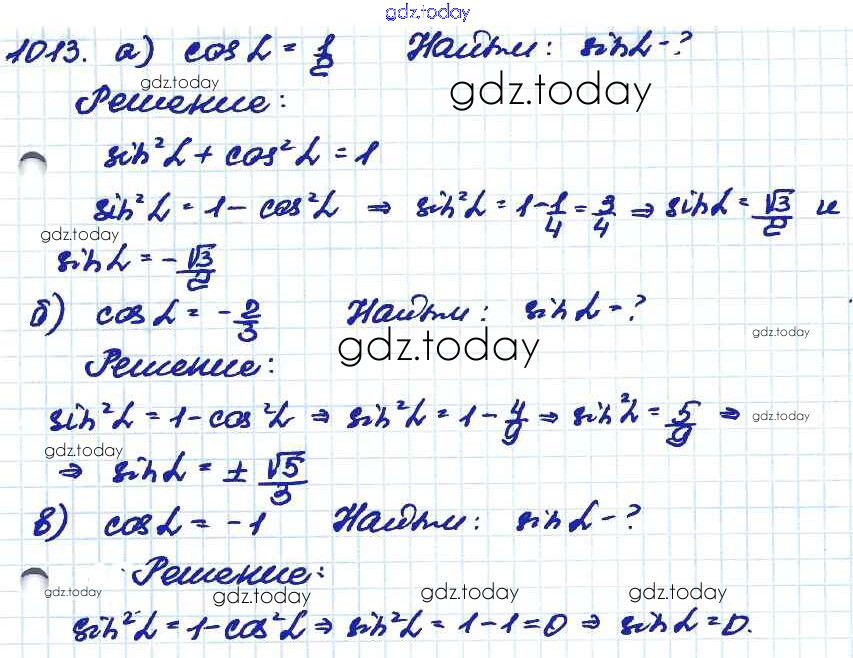 gdz.today
1013. а) cos L = 1/2 Найти: sin L - ?
gdz.today
gdz.today
Решение:
sin² L + cos² L = 1
sin² L = 1 - cos² L ⇒ sin² L = 1 - 1/4 = 3/4 ⇒ sin L = √3/2 и
gdz.today
sin L = - √3/2
б) cos L = - 2/3 Найти: sin L - ?
gdz.today
gdz.today
Решение:
sin² L = 1 - cos² L ⇒ sin² L = 1 - 4/9 ⇒ sin² L = 5/9 ⇒
gdz.today
gdz.today
⇒ sin L = ± √5/3
в) cos L = -1 Найти: sin L - ?
Решение:
gdz.today
gdz.today
gdz.today
gdz.today
sin² L = 1 - cos² L ⇒ sin² L = 1 - 1 = 0 ⇒ sin L = 0.